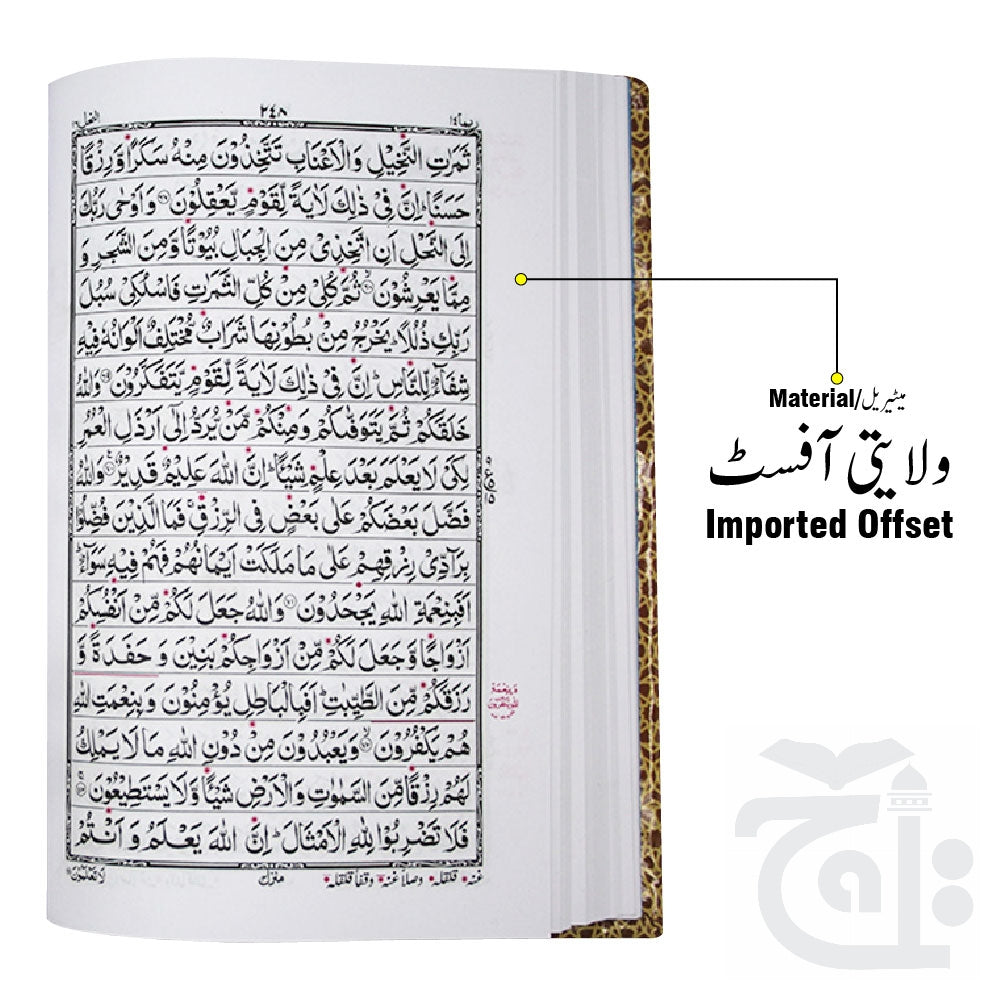 ربما ١٤ ٢٤٨ النحل ١٦
ثَمَرٰتِ النَّخِيْلِ وَالْاَعْنَابِ تَتَّخِذُوْنَ مِنْهُ سَكَرًا وَّرِزْقًا
حَسَنًا ؕ اِنَّ فِيْ ذٰلِكَ لَاٰيَةً لِّقَوْمٍ يَّعْقِلُوْنَ ﴿۶۷﴾ وَاَوْحٰى رَبُّكَ
اِلَى النَّحْلِ اَنِ اتَّخِذِيْ مِنَ الْجِبَالِ بُيُوْتًا وَّمِنَ الشَّجَرِ وَ
مِمَّا يَعْرِشُوْنَ ﴿۶۸﴾ ثُمَّ كُلِيْ مِنْ كُلِّ الثَّمَرٰتِ فَاسْلُكِيْ سُبُلَ
رَبِّكِ ذُلُلًا ؕ يَخْرُجُ مِنْۢ بُطُوْنِهَا شَرَابٌ مُّخْتَلِفٌ اَلْوَانُهٗ فِيْهِ
شِفَآءٌ لِّلنَّاسِ ؕ اِنَّ فِيْ ذٰلِكَ لَاٰيَةً لِّقَوْمٍ يَّتَفَكَّرُوْنَ ﴿۶۹﴾ وَاللّٰهُ
خَلَقَكُمْ ثُمَّ يَتَوَفّٰىكُمْ وَمِنْكُمْ مَّنْ يُّرَدُّ اِلٰٓى اَرْذَلِ الْعُمُرِ
لِكَيْ لَا يَعْلَمَ بَعْدَ عِلْمٍ شَيْـًٔا ؕ اِنَّ اللّٰهَ عَلِيْمٌ قَدِيْرٌ ﴿۷۰﴾ وَاللّٰهُ
فَضَّلَ بَعْضَكُمْ عَلٰى بَعْضٍ فِي الرِّزْقِ ۚ فَمَا الَّذِيْنَ فُضِّلُوْا
بِرَآدِّيْ رِزْقِهِمْ عَلٰى مَا مَلَكَتْ اَيْمَانُهُمْ فَهُمْ فِيْهِ سَوَآءٌ ؕ
اَفَبِنِعْمَةِ اللّٰهِ يَجْحَدُوْنَ ﴿۷۱﴾ وَاللّٰهُ جَعَلَ لَكُمْ مِّنْ اَنْفُسِكُمْ
اَزْوَاجًا وَّجَعَلَ لَكُمْ مِّنْ اَزْوَاجِكُمْ بَنِيْنَ وَ حَفَدَةً وَّ
رَزَقَكُمْ مِّنَ الطَّيِّبٰتِ ؕ اَفَبِالْبَاطِلِ يُؤْمِنُوْنَ وَبِنِعْمَتِ اللّٰهِ
هُمْ يَكْفُرُوْنَ ﴿۷۲﴾ وَيَعْبُدُوْنَ مِنْ دُوْنِ اللّٰهِ مَا لَا يَمْلِكُ
لَهُمْ رِزْقًا مِّنَ السَّمٰوٰتِ وَالْاَرْضِ شَيْـًٔا وَّلَا يَسْتَطِيْعُوْنَ ﴿۷۳﴾
فَلَا تَضْرِبُوْا لِلّٰهِ الْاَمْثَالَ ؕ اِنَّ اللّٰهَ يَعْلَمُ وَ اَنْتُمْ
غنه • قلقله • وصلاً غنه • وقفاً قلقله • منزل ٣ لَا تَعْلَمُوْنَ
Material/میٹیریل
ولایتی آفسٹ
Imported Offset
تاج